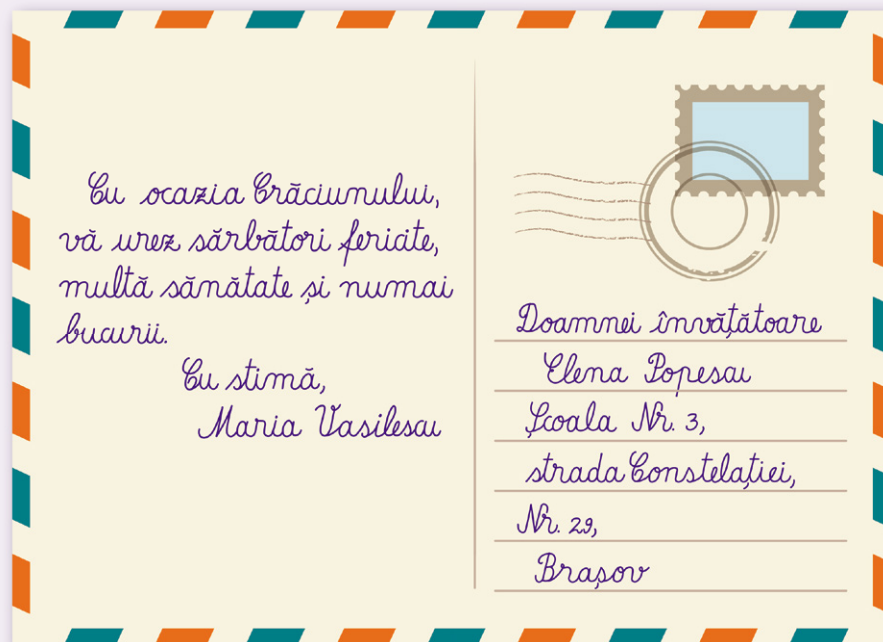 Cu ocazia Crăciunului,
vă urez sărbători fericite,
multă sănătate și numai
bucurii.
Cu stimă,
Maria Vasilescu
Doamnei învățătoare
Elena Popescu
Școala Nr. 3,
strada Constelației,
Nr. 29,
Brașov